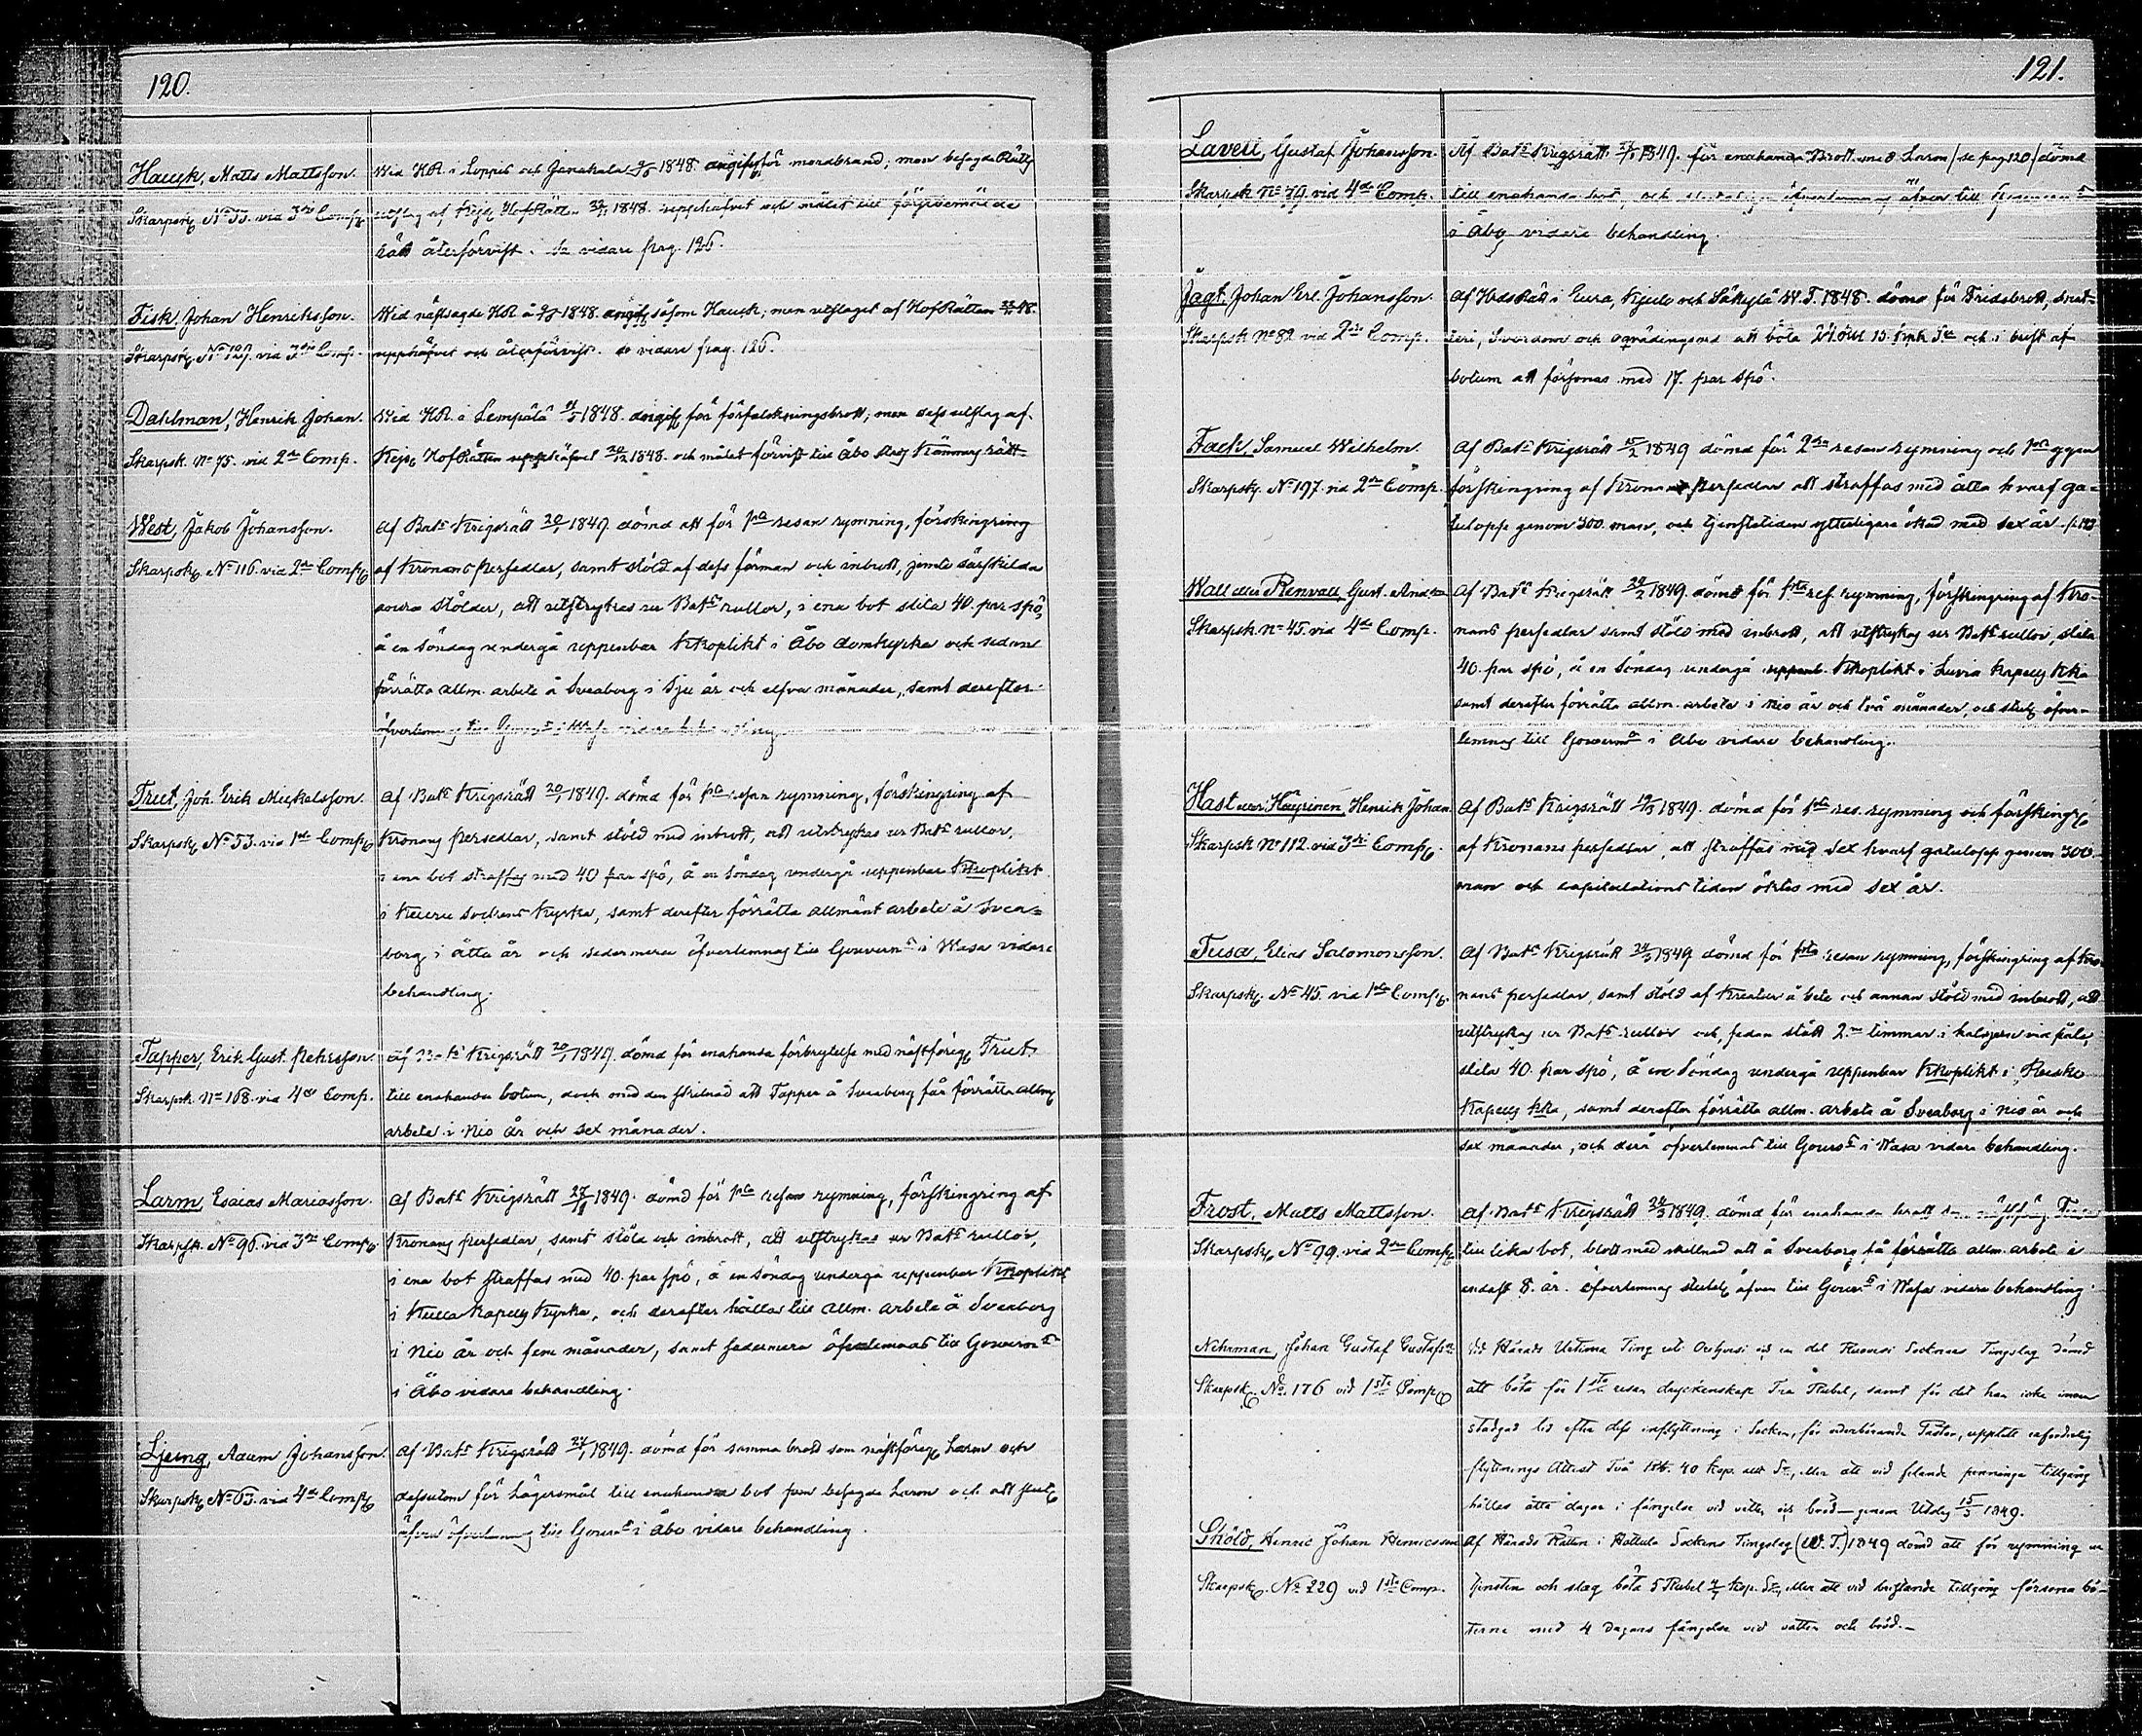 120.
Hauk, Matts Mattsson.
Skarpsk. No 53. vid 3die Comp.
Wid HR. i Loppis och Janakala 1848. angifv. för mordbrand; men besagde Rätts
utslag af Kejs. HofRätten 1848. upphäfvet och målet till
rätt återförvist. Se vidare pag. 126.
Fisk, Johan Henriksson.
Skarpsk. No 127. vid 3die Comp.
Wid nästsagde HR. å 1848. angif. såsom Hauk; men utslaget af HofRätten 48.
upphäfvet och återförvist. se vidare pag. 126.
Dahlman, Henrik Johan.
Skarpsk. No 75. vid 2dra Comp.
Wid HR. i Lempälä 1848. angif. för förfalskningsbrott; men dess utslag af
Kejs. HofRätten upphäfvet 20/12 1848. och målet förvist till Åbo Kämners rätt
West, Jakob Johansson.
Skarpsk. No 116. vid 2dra Comp.
Af Bats Krigsrätt 20/1 1849. dömd att för 1sta resan rymning, förskingring
af Kronans persedlar, samt stöld af dess förman och inbrott, jemte särskilda
andra stölder, att utstrykas ur Bats rullor, i ena bot slita 40. par spö,
å en Söndag undergå uppenbar Kkoplikt i Åbo domkyrka och sedan
förrätta allm. arbete å Sveaborg i Sju år och elfva månader, samt derefter
öfverlemnas till Gouv. i vidare behandling.
Trut, Joh. Erik Mickelsson.
Skarpsk. No 53. vid 1sta Comp.
Af Bats Krigsrätt 20/1 1849. dömd för 1sta resan rymning, förskingring af
Kronans persedlar, samt stöld med inbrott, att utstrykas ur Bats rullor,
i ena bot straffas med 40 par spö, å en Söndag undergå uppenbar Kkoplikt
i Keuru Sockens Kyrka, samt derefter förrätta allmänt arbete å Svea-
borg i åtta år och sedermera öfverlemnas till Gouvern. i Wasa vidare
behandling.
Tapper, Erik Gust. Pehrsson.
Skarpsk. No 168. vid 4de Comp.
Af Bats Krigsrätt 20/1 1849. dömd för enahanda förbrytelse med nästföreg. Trut
till enahanda boten, dock med den skilnad att Tapper å Sveaborg får förrätta allm.
arbete i Nio år och sex månader.
Larm, Esaias Mariasson.
Skarpsk. No 96. vid 3die Comp.
Af Bats Krigsrätt 27/1 1849. dömd för 1sta resan rymning, förskingring af
Kronans persedlar, samt stöld och inbrott, att utstrykas ur Bats rullor,
i ena bot straffas med 40. par spö, å en Söndag undergå uppenbar Kkoplikt
i Kulla Kapells Kyrka, och derefter hållas till allm. arbete å Sveaborg
i Nio år och fem månader, samt sedermera öfverlemnas till Gouvern.
i Åbo vidare behandling.
Ljung, Adam Johansson.
Skarpsk. No 63. vid 4de Comp.
Af Bats Krigsrätt 27/1 1849. dömd för samma brott som nästföreg. Larm och
dessutom för Lägersmål till enahanda bot som besagde Larm och att slutl.
äfven öfverlemnas till Gouvern. i Åbo vidare behandling.
121.
Lavell, Gustaf Johansson.
Skarpsk. No 79. vid 4de Comp.
Af Bats Krigsrätt 1849. för enahanda Brott med Larm /se pag 120/ dömd
till enahanda bot, och öfverlemnas äfven till
i Åbo vidare behandling.
Jagt, Johan Eric Johansson.
Skarpsk No 82 vid 2dra Comp.
Af HdsRätt i Eura, Kjulo och Säkylä W.T. 1848. dömd för Fridsbrott,
Svordom och oqvädingsord att böta 24 Rbl 15. kop. Sr och i brist af
botum att försonas med 17. par spö.
Fack, Samuel Wilhelm.
Skarpsk. No 197. vid 2dra Comp.
Af Bats Krigsrätt 15/2 1849 dömd för 2dra resan rymning och 1sta ggen
förskingring af Kronans persedlar att straffas med åtta hvarf ga-
tulopp genom 300. man, och tjenstetiden ytterligare ökad med sex år.
Wall eller Renvall, Gust. Anders
Skarpsk. No 45. vid 4de Comp.
Af Bats Krigsrätt 1849. dömd för 1sta res. rymning, förskingring af Kro-
nans persedlar samt stöld med inbrott, att utstrykas ur Bats rullor, slita
40. par spö, å en Söndag undergå uppenb. Kkoplikt i Luvia Kapells Kka
samt derefter förrätta allm. arbete i Nio år och två månader, och slutl. öfver-
lemnas till Gouvern. i Åbo vidare behandling.
Hast eller Häyrinen, Henrik Johan.
Skarpsk No 112. vid 3die Comp.
Af Bats Krigsrätt 1849. dömd för 1sta res. rymning och förskingr.
af Kronans persedlar, att straffas med sex hvarf gatulopp genom 300.
man och capitulations tiden öktes med sex år.
Tusa, Elias Salomonsson.
Skarpsk. No 45. vid 1sta Comp.
Af Bats Krigsrätt 24/3 1849 dömd för 1sta resan rymning, förskingring af Kro-
nans persedlar, samt stöld af Kreatur å bete och annan stöld med inbrott, att
utstrykas ur Bats rullor och, sedan stått 2ne timmar i halsjern vid påle,
slita 40. par spö, å en Söndag undergå uppenbar Kkoplikt i
Kapells Kka, samt derefter förrätta allm. arbete å Sveaborg i nio år och
sex månader, och öfverlemnas till Gouvern. i Wasa vidare behandling.
Frost, Matts Mattsson.
Skarpsk. No 99. vid 2dra Comp.
Af Bats Krigsrätt 24/3 1849. dömd för enahanda brott som nästföreg. Tusa
till lika bot, blott med skillnad att å Sveaborg få förrätta allm. arbete i
endast 8. år. öfverlemnas slutel. äfven till Gouvern. i Wasa vidare behandling.
Nehrman, Johan Gustaf Gustafsn
Skarpsk. No. 176 vid 1sta Comp.
Vid Härads Urtima Ting uti och en del Ruovesi Socknars Tingslag dömd
att böta för 1sta resan dryckenskap Två Rubel, samt för det han icke inom
stadgad tid efter dess inflyttning i Socken, för vederbörande Pastor, uppvist erforderlig
flyttnings Attest Två Rub. 40 kop. allt Sr., eller att vid felande penninge tillgång
hållas åtta dagar i fängelse vid vatten och bröd – genom Utslag 15/3 1849.
Sköld, Henric Johan Henricsson
Skarpsk. No 229 vid 1sta Comp.
Af Härads Rätten i Hattula Sockens Tingslag (W.T.) 1849 dömd att för rymning ur
tjensten och slag böta 5 Rubel kop. Sr., eller att vid bristande tillgång försona bö-
terne med 4 dagars fängelse vid vatten och bröd.–